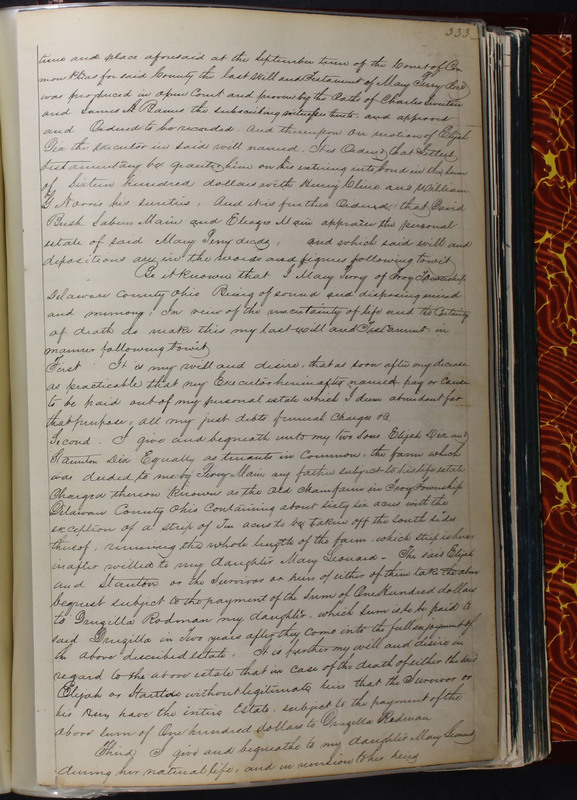 333
time and place aforesaid at the September term of the Court of Com
mon Pleas for said County the last Will and Testament of Mary Terry Decd
was produced in open Court and proven by the Oaths of Charles Sweetser
and James A Barnes the subscribing witnesses thereto and approved
and Ordered to be recorded. And thereupon on motion of Elijah
Dix the executor in said will named. It is Ordered that Letters
testamentary be granted him on his entering into bond in the sum
of Sixteen hundred dollars with Henry Cline and William
G Norris his sureties, And it is further Ordered that David
Bush Sabin Main and Eleazer Main appraise the personal
estate of said Mary Terry decd, and which said will and
depositions are in the words and figures following towit
Be it Known that I Mary Terry of Troy Township
Delaware County Ohio Being of sound and disposing mind
and memory, In view of the uncertainty of life and the Certainty
of death do make this my last will and Testament in
manner following towit
First It is my will and desire, that as soon after my decease
as practicable that my Executor hereinafter named pay or Cause
to be paid out of my personal estate which I deem abundant for
that purpose, all my just debts funeral Charges &c
Second. I give and bequeath unto my two Sons Elijah Dix and
Staunton Dix Equally as tenants in Common, the farm which
was deeded to me by Timy Main my father subject to his life estate
Charged thereon Known as the Old Main farm in Troy Township
Delaware County Ohio Containing about sixty six acres with the
exception of a strip of Ten acres to be taken off the South side
thereof, running the whole length of the farm, which strip is herein
inafter willed to my daughter Mary Leonard - The said Elijah
and Stanton or the Survivor or heirs of either of them take the above
bequest subject to the payment of the Sum of One Hundred dollars
to Druzilla Rodman my daughter, which sum is to be paid to
said Druzilla in two years after they come into the full enjoyment of
the above described estate. It is further my will and desire in
regard to the above estate that in Case of the death of either the said
Elijah or Stanton without legitimate heirs that the Survivor or
his heirs have the entire Estate subject to the payment of the
above sum of One hundred dollars to Druzilla Rodman
Third I give and bequeathe to my daughter Mary Leonard
during her natural life, and in reversion to his heirs